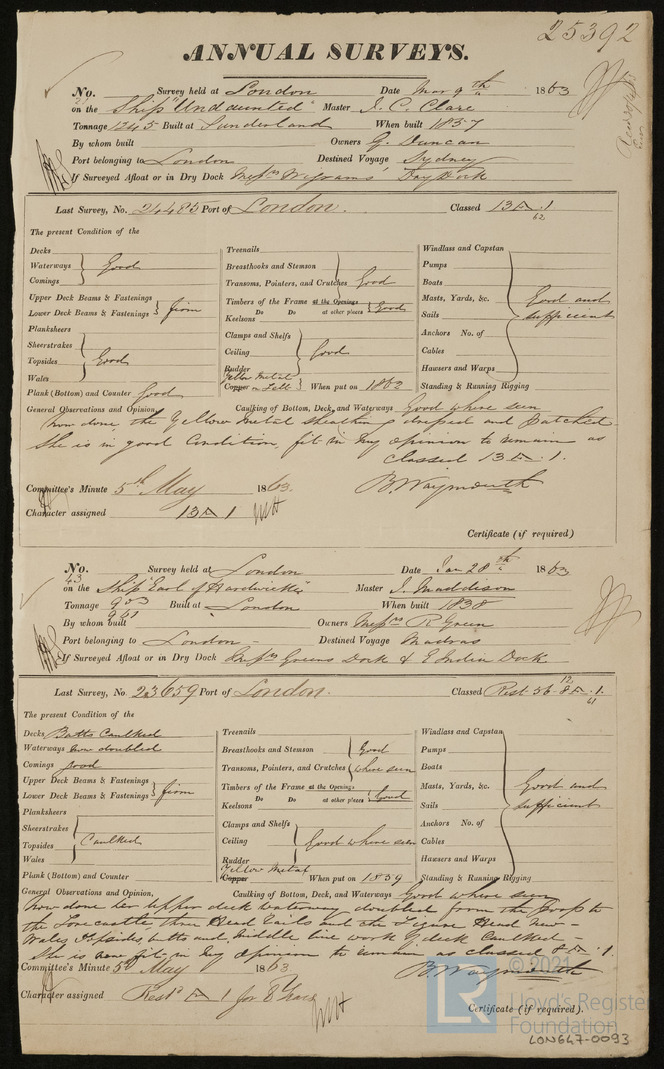 25392
ANNUAL SURVEYS.
No. Survey held at London Date Mar 9th 1863
on the Ship "Undaunted" Master J. C. Clare
Tonnage 1245 Built at Sunderland When built 1857
By whom built Owners G. Duncan
Port belonging to London Destined Voyage Sydney
If Surveyed Afloat or in Dry Dock Messrs Wigrams' Dry Dock
Last Survey, No. 24485 Port of London. Classed 13 A .1
62
The present Condition of the
Decks
Waterways } Good
Comings
Upper Deck Beams & Fastenings
Lower Deck Beams & Fastenings } firm
Planksheers
Sheerstrakes
Topsides } Good
Wales
Plank (Bottom) and Counter Good
Treenails
Breasthooks and Stemson
Transoms, Pointers, and Crutches Good
Timbers of the Frame at the Openings
Do Do at other places } Good
Keelsons
Clamps and Shelfs
Ceiling } Good
Rudder
Yellow Metal
Copper on Felt } When put on 1862
Windlass and Capstan
Pumps
Boats
Masts, Yards, &c. Good and
Sails sufficient
Anchors No. of
Cables
Hawsers and Warps
Standing & Running Rigging
General Observations and Opinion, Caulking of Bottom, Deck, and Waterways Good where seen
Now done, the Yellow Metal sheathing dressed and patched
She is in good Condition, fit in my opinion to remain as
classed 13 A .1.
Committee's Minute 5th May 1863. B. Waymouth
Character assigned 13 A 1
Certificate (if required)
No. Survey held at London Date Jan 28th 1863
43
on the Ship "Earl of Hardwicke" Master J. Maddison
Tonnage 903 Built at London When built 1838
961
By whom built Owners Messrs R Green
Port belonging to London - Destined Voyage Madras
If Surveyed Afloat or in Dry Dock Messrs Greens Dock & E India Dock
Last Survey, No. 23659 Port of London. Classed Rest 56-8 A .1
12
61
The present Condition of the
Decks Butts Caulked
Waterways now doubled
Comings good
Upper Deck Beams & Fastenings
Lower Deck Beams & Fastenings } firm
Planksheers
Sheerstrakes
Topsides } Caulked
Wales
Plank (Bottom) and Counter
Treenails
Breasthooks and Stemson Good
Transoms, Pointers, and Crutches where seen
Timbers of the Frame at the Openings
Do Do at other places } Good
Keelsons
Clamps and Shelfs
Ceiling } Good where seen
Rudder
Yellow Metal
Copper When put on 1859
Windlass and Capstan
Pumps
Boats
Masts, Yards, &c. Good and
Sails sufficient
Anchors No. of
Cables
Hawsers and Warps
Standing & Running Rigging
General Observations and Opinion, Caulking of Bottom, Deck, and Waterways Good where seen
Now done her upper deck waterway doubled from the Poop to
the Forecastle, three Head Rails and the Figure Head New
Wales topsides butts and middle line work of deck Caulked -
She is now fit in my opinion to remain as classed 8 A .1.
Committee's Minute 5th May 1863 B. Waymouth
Character assigned Restd A 1 for 8 Years
Certificate (if required).
© 2021
LR
Lloyd's Register
Foundation
LON647-0093